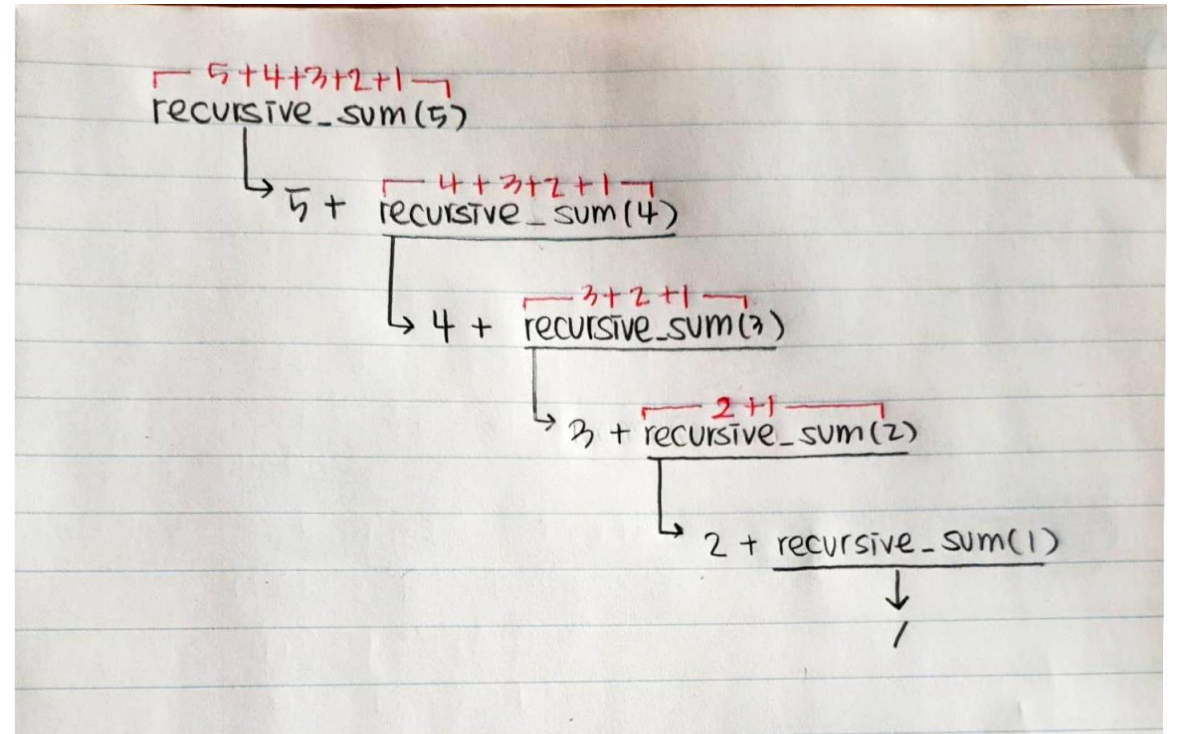 5+4+3+2+1
recursive_sum(5)
4+3+2+1
5 + recursive_sum(4)
3+2+1
4 + recursive_sum(3)
2+1
3 + recursive_sum(2)
2 + recursive_sum(1)
1